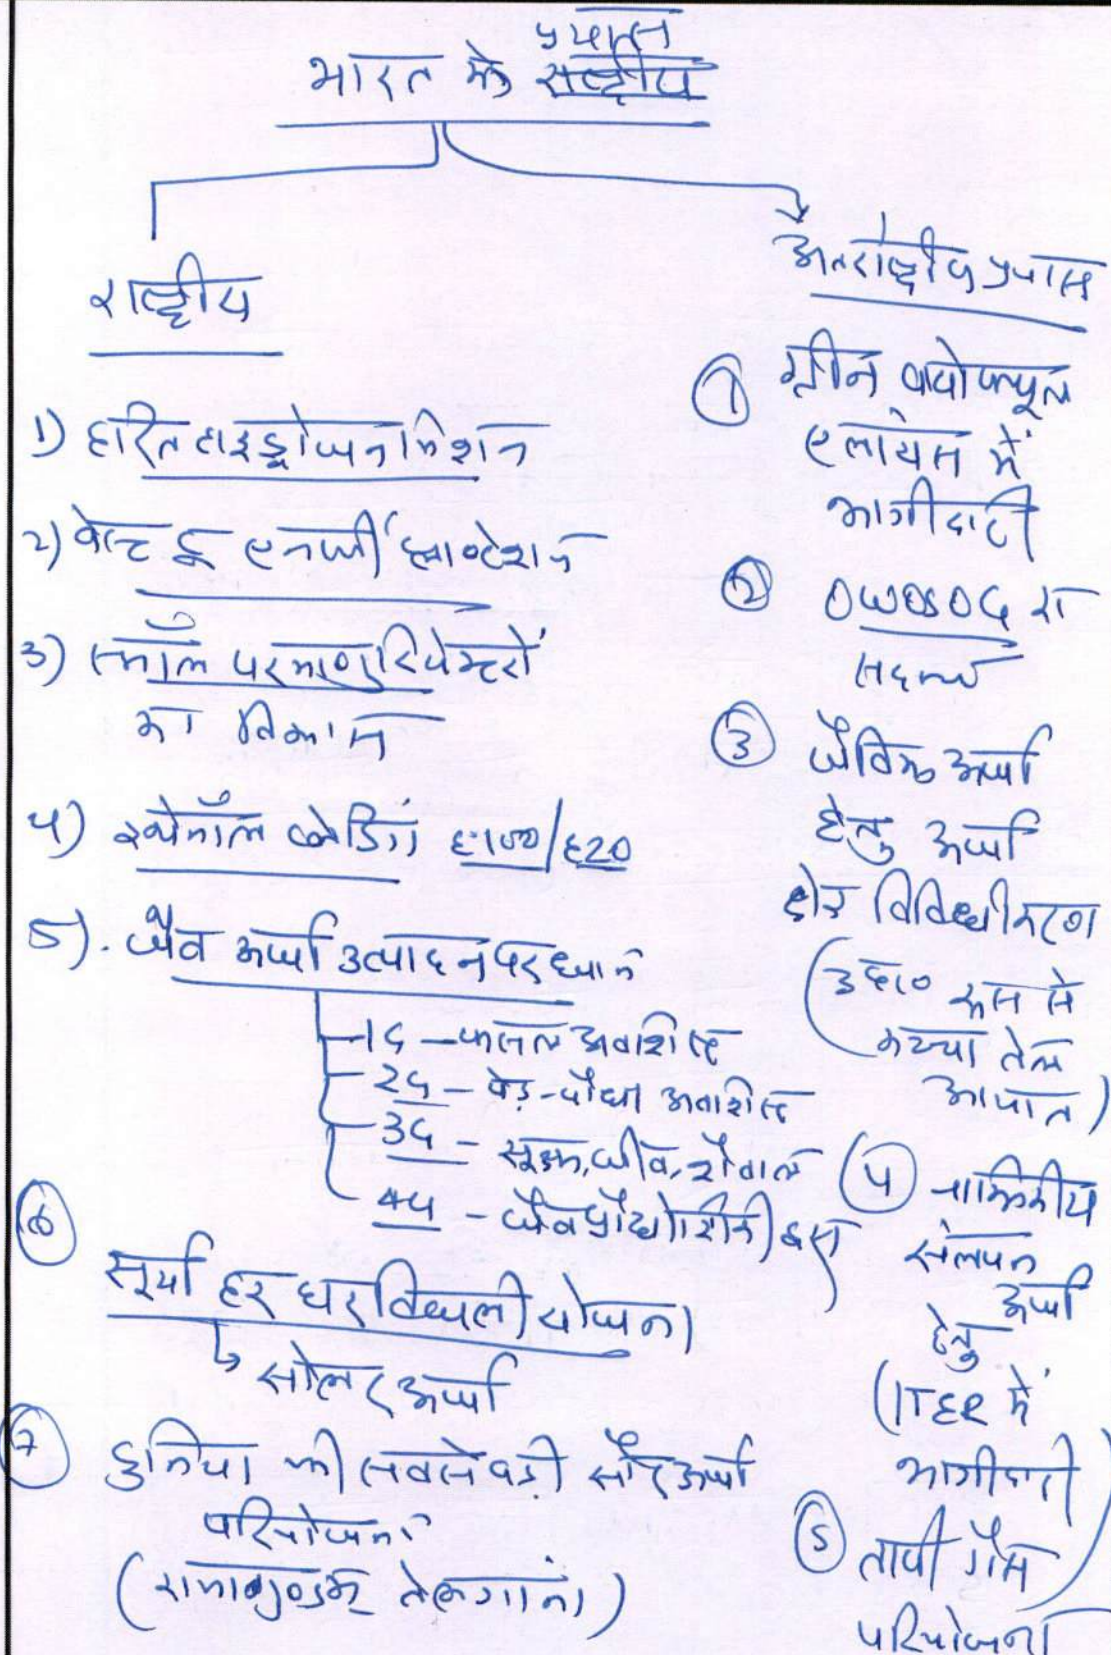 भारत के प्रयास
राष्ट्रीय
1) हरित हाइड्रोजन मिशन
2) वेस्ट टू एनर्जी प्लान्टेशन
3) स्मॉल परमाणु रियेक्टरों
का विकास
4) इथेनॉल ब्लेडिंग E100/E20
5). जैव ऊर्जा उत्पादन पर ध्यान
1G – फसल अवशिष्ट
2G – पेड़-पौधा अवशिष्ट
3G – सूक्ष्म, जीव, शैवाल
4G – जैव प्रौद्योगिकी द्वारा
6
सूर्या हर घर बिजली योजना
↳ सोलर ऊर्जा
7 दुनिया की सबसे बड़ी सौर ऊर्जा
परियोजना
(रामागुण्डम तेलगांना)
अन्तर्राष्ट्रीय प्रयास
1 ग्रीन बायोफ्यूल
एलायंस में
भागीदारी
2 OWOSOG का
सदस्य
3 जैविक ऊर्जा
हेतु ऊर्जा
क्षेत्र विविधीकरण
(उदा० रूस से
कच्चा तेल
आयात)
4 नाभिकीय
संलयन
ऊर्जा
हेतु
(ITER में
भागीदारी)
5 तापी गैस
परियोजना